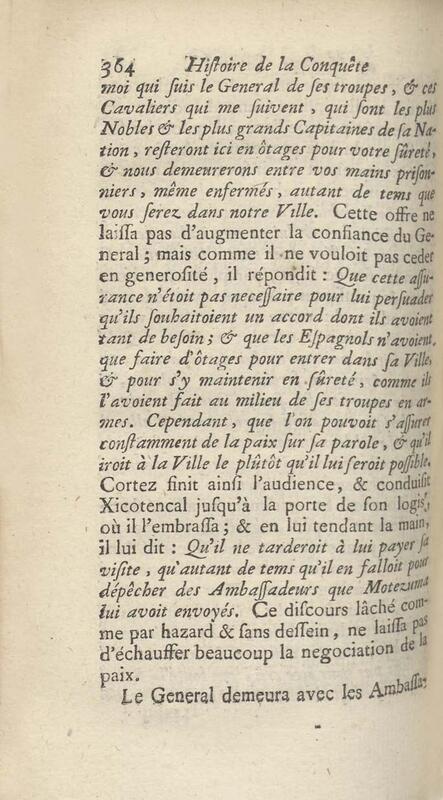 364 Hiſtoire de la Conquête
moi qui ſuis le General de ſes troupes, & ces
Cavaliers qui me ſuivent, qui ſont les plus
Nobles & les plus grands Capitaines de ſa Na-
tion, reſteront ici en ôtages pour votre ſûreté,
& nous demeurerons entre vos mains priſon-
niers, même enfermés, autant de tems que
vous ſerez dans notre Ville. Cette offre ne
laiſſa pas d'augmenter la confiance du Ge-
neral; mais comme il ne vouloit pas ceder
en generoſité, il répondit: Que cette aſſu-
rance n'étoit pas neceſſaire pour lui perſuader
qu'ils ſouhaitoient un accord dont ils avoient
tant de beſoin; & que les Eſpagnols n'avoient
que faire d'ôtages pour entrer dans ſa Ville,
& pour s'y maintenir en ſûreté, comme ils
l'avoient fait au milieu de ſes troupes en ar-
mes. Cependant, que l'on pouvoit s'aſſurer
conſtamment de la paix ſur ſa parole, & qu'il
iroit à la Ville le plûtôt qu'il lui ſeroit poſſible.
Cortez finit ainſi l'audience, & conduiſit
Xicotencal juſqu'à la porte de ſon logis,
où il l'embraſſa; & en lui tendant la main,
il lui dit: Qu'il ne tarderoit à lui payer ſa
viſite, qu'autant de tems qu'il en falloit pour
dépêcher des Ambaſſadeurs que Motezuma
lui avoit envoyés. Ce diſcours lâché com-
me par hazard & ſans deſſein, ne laiſſa pas
d'échauffer beaucoup la negociation de la
paix.
Le General demeura avec les Ambaſſa-